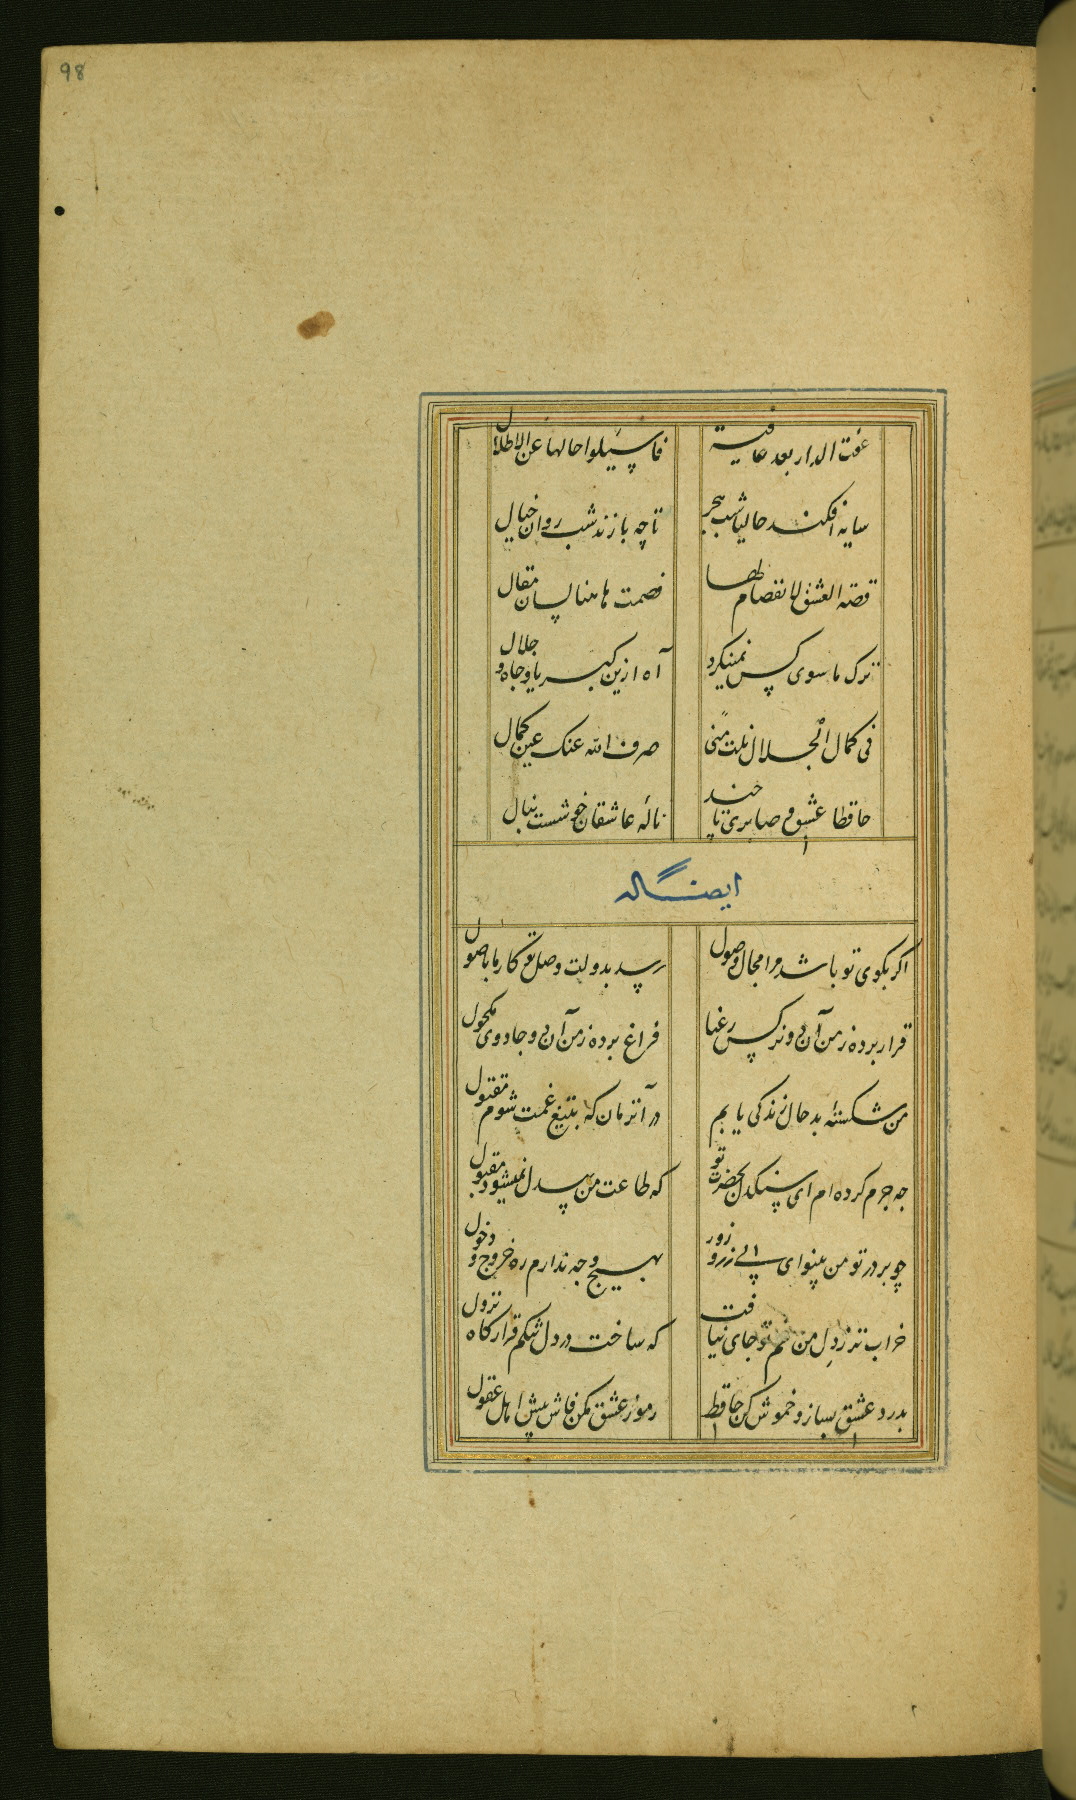 98
عفت الدار بعد عافیة فاسئلوا حالها عن الاطلال
سایه افکند حالیا شب هجر تا چه بازند شب روان خیال
قصة العشق لا انفصام لها فصمت هاهنا لسان مقال
ترک ما سوی کس نمینکرد آه ازین کبریا و جاه و جلال
فی کمال الجلال نلت منی صرف الله عنک عین کمال
حافظا عشق و صابری تا چند ناله عاشقان خوشست بنال
ایضاله
اکر بکوی تو باشد مرا مجال وصول رسد بدولت وصل تو کار ما باصول
قرار برده ز من آن دو نرکس رعنا فراغ برده ز من آن دو جادوی مکحول
من شکسته بد حال زندکی یابم در آنزمان که بتیغ غمت شوم مقتول
چه جرم کرده ام ای سنکدل بحضرت تو که طاعت من بیدل نمیشود مقبول
چو بر در تو من بینوای بی زر و زور بهیچ وجه ندارم ره خروج و دخول
خراب تر ز دل من غم تو جای نیافت که ساخت در دل تنکم قرارکاه نزول
بدرد عشق بساز و خموش کن حافظ رموز عشق مکن فاش پیش اهل عقول